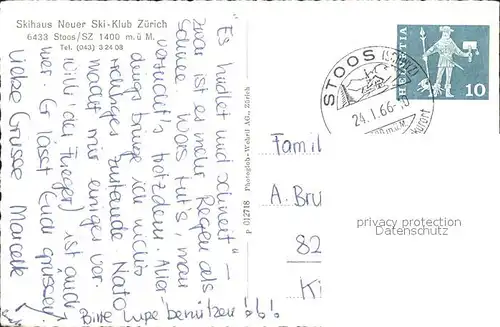 Skihaus Neuer Ski-Klub Zürich
6433 Stoos/SZ 1400 m.ü M.
Tel. (043) 3 24 08
Es hudlet und schneit –
zwar ist es mehr Regen als
Schnee. Wors tut's, man
versucht's trotzdem. Aller
dings bringe ich nichts
richtiges zustande. Nato
macht mir einiges vor.
Willi (de Flüeger) ist auch
hier. Er lässt Euch grüssen
Liebe Grüsse Marcelle
Bitte Lupe benützen!!
P 012718 Photoglob-Wehrli AG, Zürich
STOOS (SCHWYZ)
24.1.66-
Kurort
HELVETIA
10
Famil
A. Bru
82
Ki
privacy protection
Datenschutz